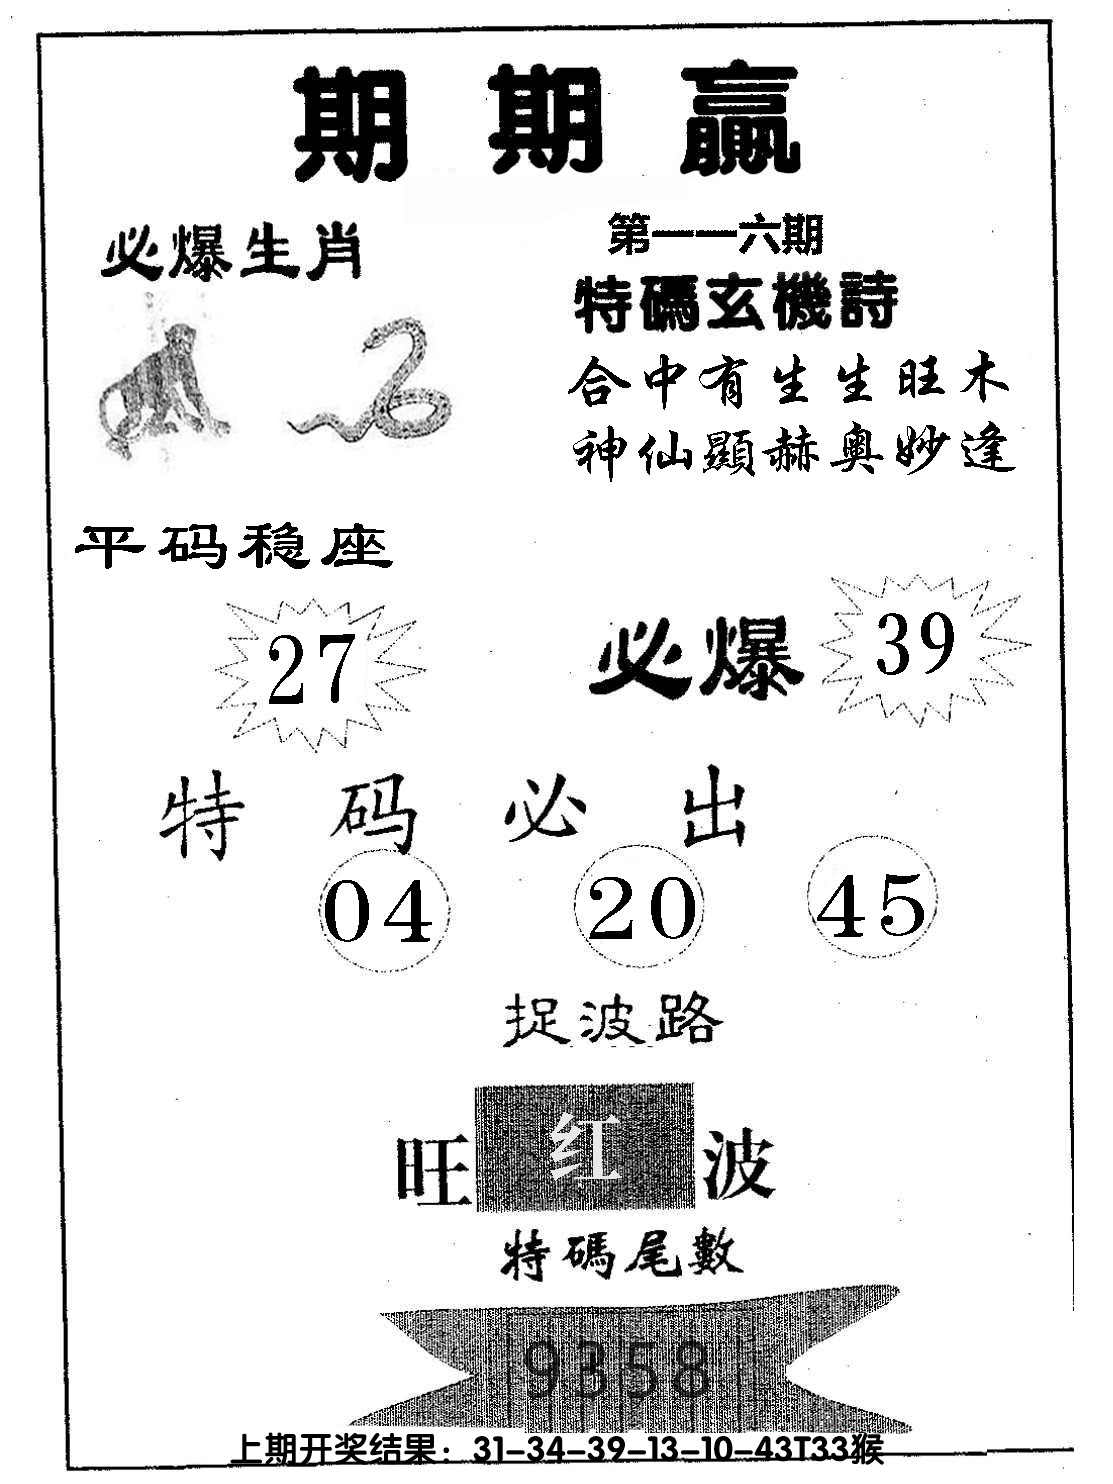 期期贏
必爆生肖
第一一六期
特碼玄機詩
合中有生生旺木
神仙顯赫奧妙逢
平码稳座
27
必爆 39
特码必出
04 20 45
捉波路
旺 红 波
特碼尾數
9358
上期开奖结果：31-34-39-13-10-43T33猴